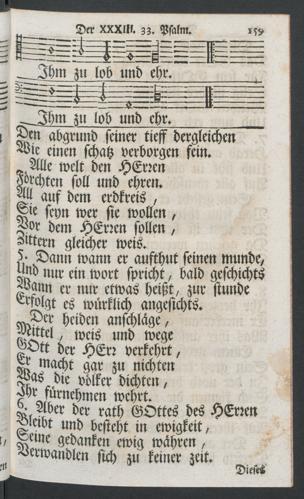 Der XXXIII. 33. Psalm. 159
Ihm zu lob und ehr.
Ihm zu lob und ehr.
Den abgrund seiner tieff dergleichen
Wie einen schatz verborgen fein.
Alle welt den HErren
Förchten soll und ehren.
All auf dem erdkreis,
Sie seyn wer sie wollen,
Vor dem HErren sollen,
Zittern gleicher weis.
5. Dann wann er aufthut seinen munde,
Und nur ein wort spricht, bald geschichts
Wann er nur etwas heißt, zur stunde
Erfolgt es würklich angesichts.
Der heiden anschläge,
Mittel, weis und wege
GOtt der HErr verkehrt,
Er macht gar zu nichten
Was die völker dichten,
Ihr fürnehmen wehrt.
6. Aber der rath GOttes des HErren
Bleibt und besteht in ewigkeit,
Seine gedanken ewig währen,
Verwandlen sich zu keiner zeit.
Dieses